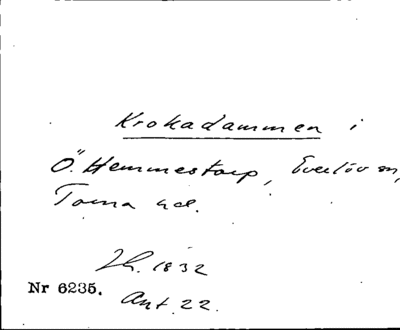 Krokadammen i
Ö. Hemmestorp, Everlöv sn,
Torna hd.
Lh. 1832
Nr 6235.
Ant. 22.